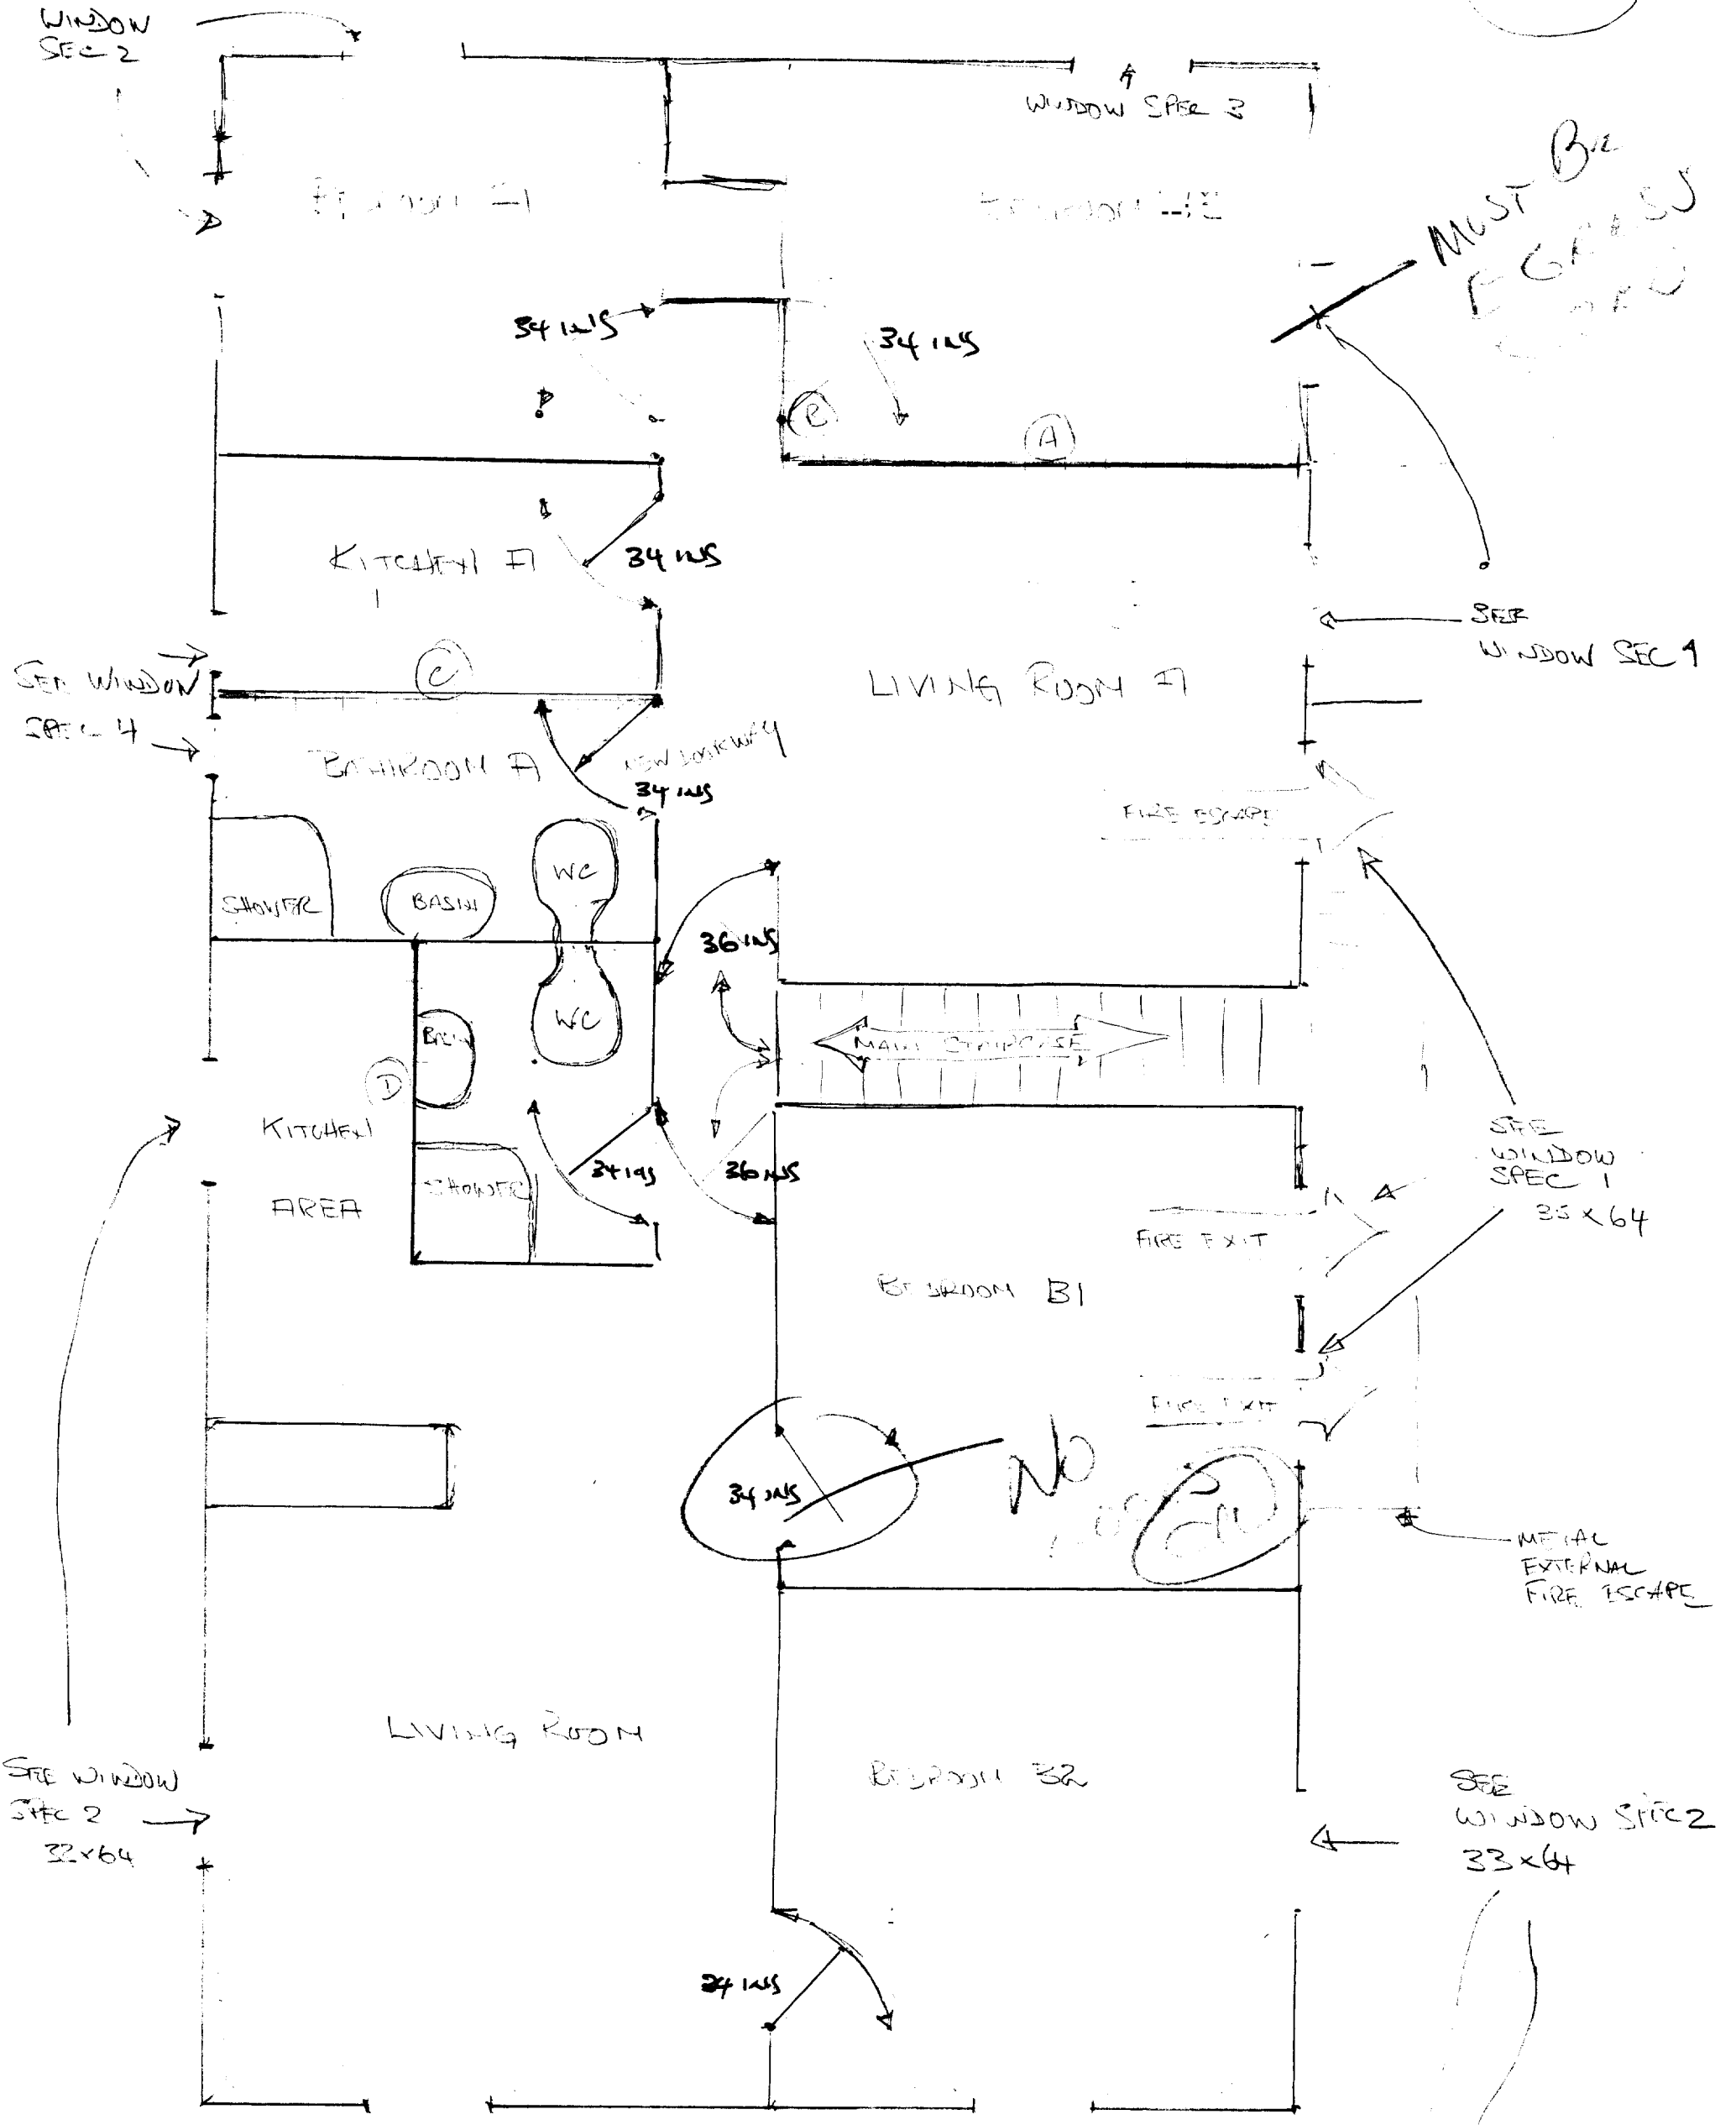 WINDOW
SEC 2
WINDOW SPEC 3
MUST BE
34 INS
34 INS
B
A
KITCHEN A
34 INS
SEE
WINDOW SEC 1
C
SEE WINDOW
SPEC 4
LIVING ROOM A
BATHROOM A
34 INS
FIRE ESCAPE
WC
SHOWER
BASIN
36 INS
WC
BASIN
MAIN STAIRCASE
D
KITCHEN
AREA
SHOWER
34 INS
36 INS
SEE
WINDOW
SPEC 1
35 x 64
FIRE EXIT
BEDROOM B1
FIRE EXIT
NO
34 INS
METAL
EXTERNAL
FIRE ESCAPE
LIVING ROOM
BEDROOM B2
SEE WINDOW
SPEC 2
32x64
SEE
WINDOW SPEC 2
33 x 64
34 INS